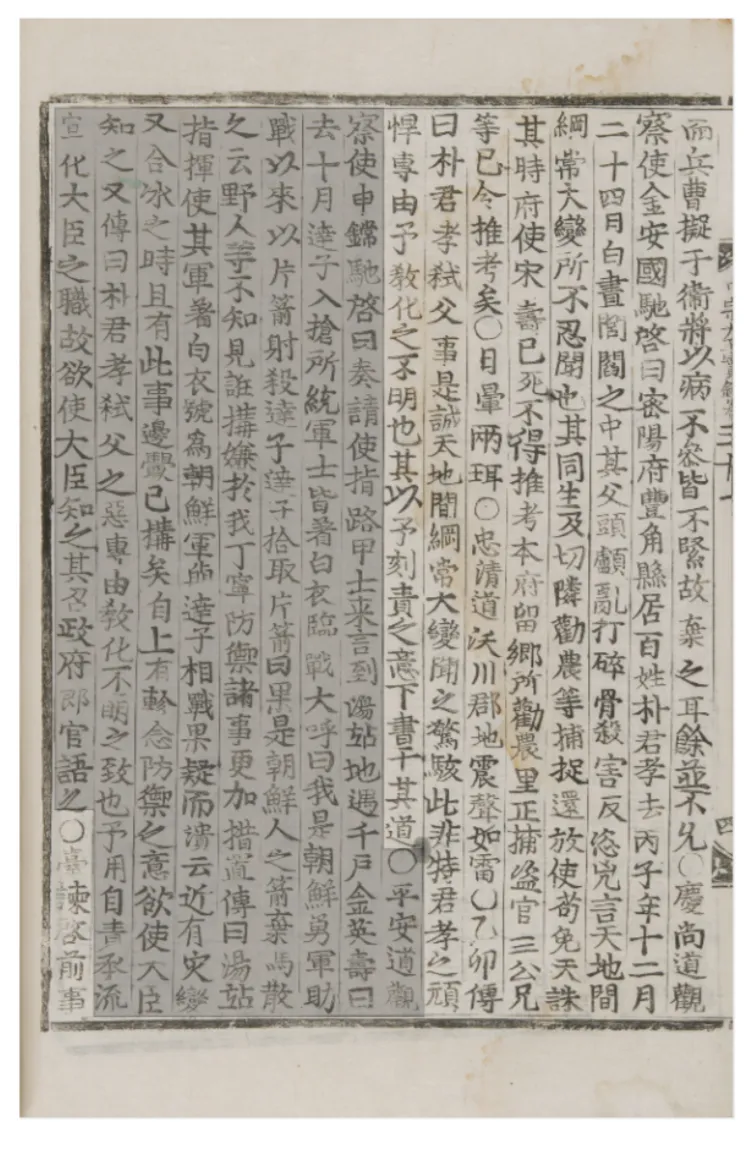 而兵曹擬于衛將以病不察皆不緊故棄之耳餘並不允○慶尚道觀
察使金安國馳啓曰密陽府豐角縣居百姓朴君孝去丙子年十二月
二十四日白晝閭閻之中其父頭顱亂打碎骨殺害反恣兇言天地間
綱常大變所不忍聞也其同生及切隣勸農等捕捉還放使苟免天誅
其時府使宋壽已死不得推考本府留鄉所勸農里正捕盜官三公兄
等已令推考矣○日暈兩珥○忠清道沃川郡地震聲如雷○乙卯傳
曰朴君孝弑父事是誠天地間綱常大變聞之驚駭此非特君孝之頑
悍專由予教化之不明也其以予刻責之意下書于其道○平安道觀
察使申鏛馳啓曰奏請使指路甲士来言到湯站地遇千戶金英壽曰
去十月達子入搶所統軍士皆著白衣臨戰大呼曰我是朝鮮勇軍助
戰以來以片箭射殺達子達子拾取片箭曰果是朝鮮人之箭棄馬散
之云野人等不知見誑搆嫌於我丁寧防禦諸事更加措置傳曰湯站
指揮使其軍著白衣號為朝鮮軍與達子相戰果疑而潰云近有灾變
又合冰之時且有此事邊釁已搆矣自上有軫念防禦之意欲使大臣
知之又傳曰朴君孝弑父之惡專由教化不明之致也予用自責承流
宣化大臣之職故欲使大臣知之其召政府郎官語之○臺諫啓前事